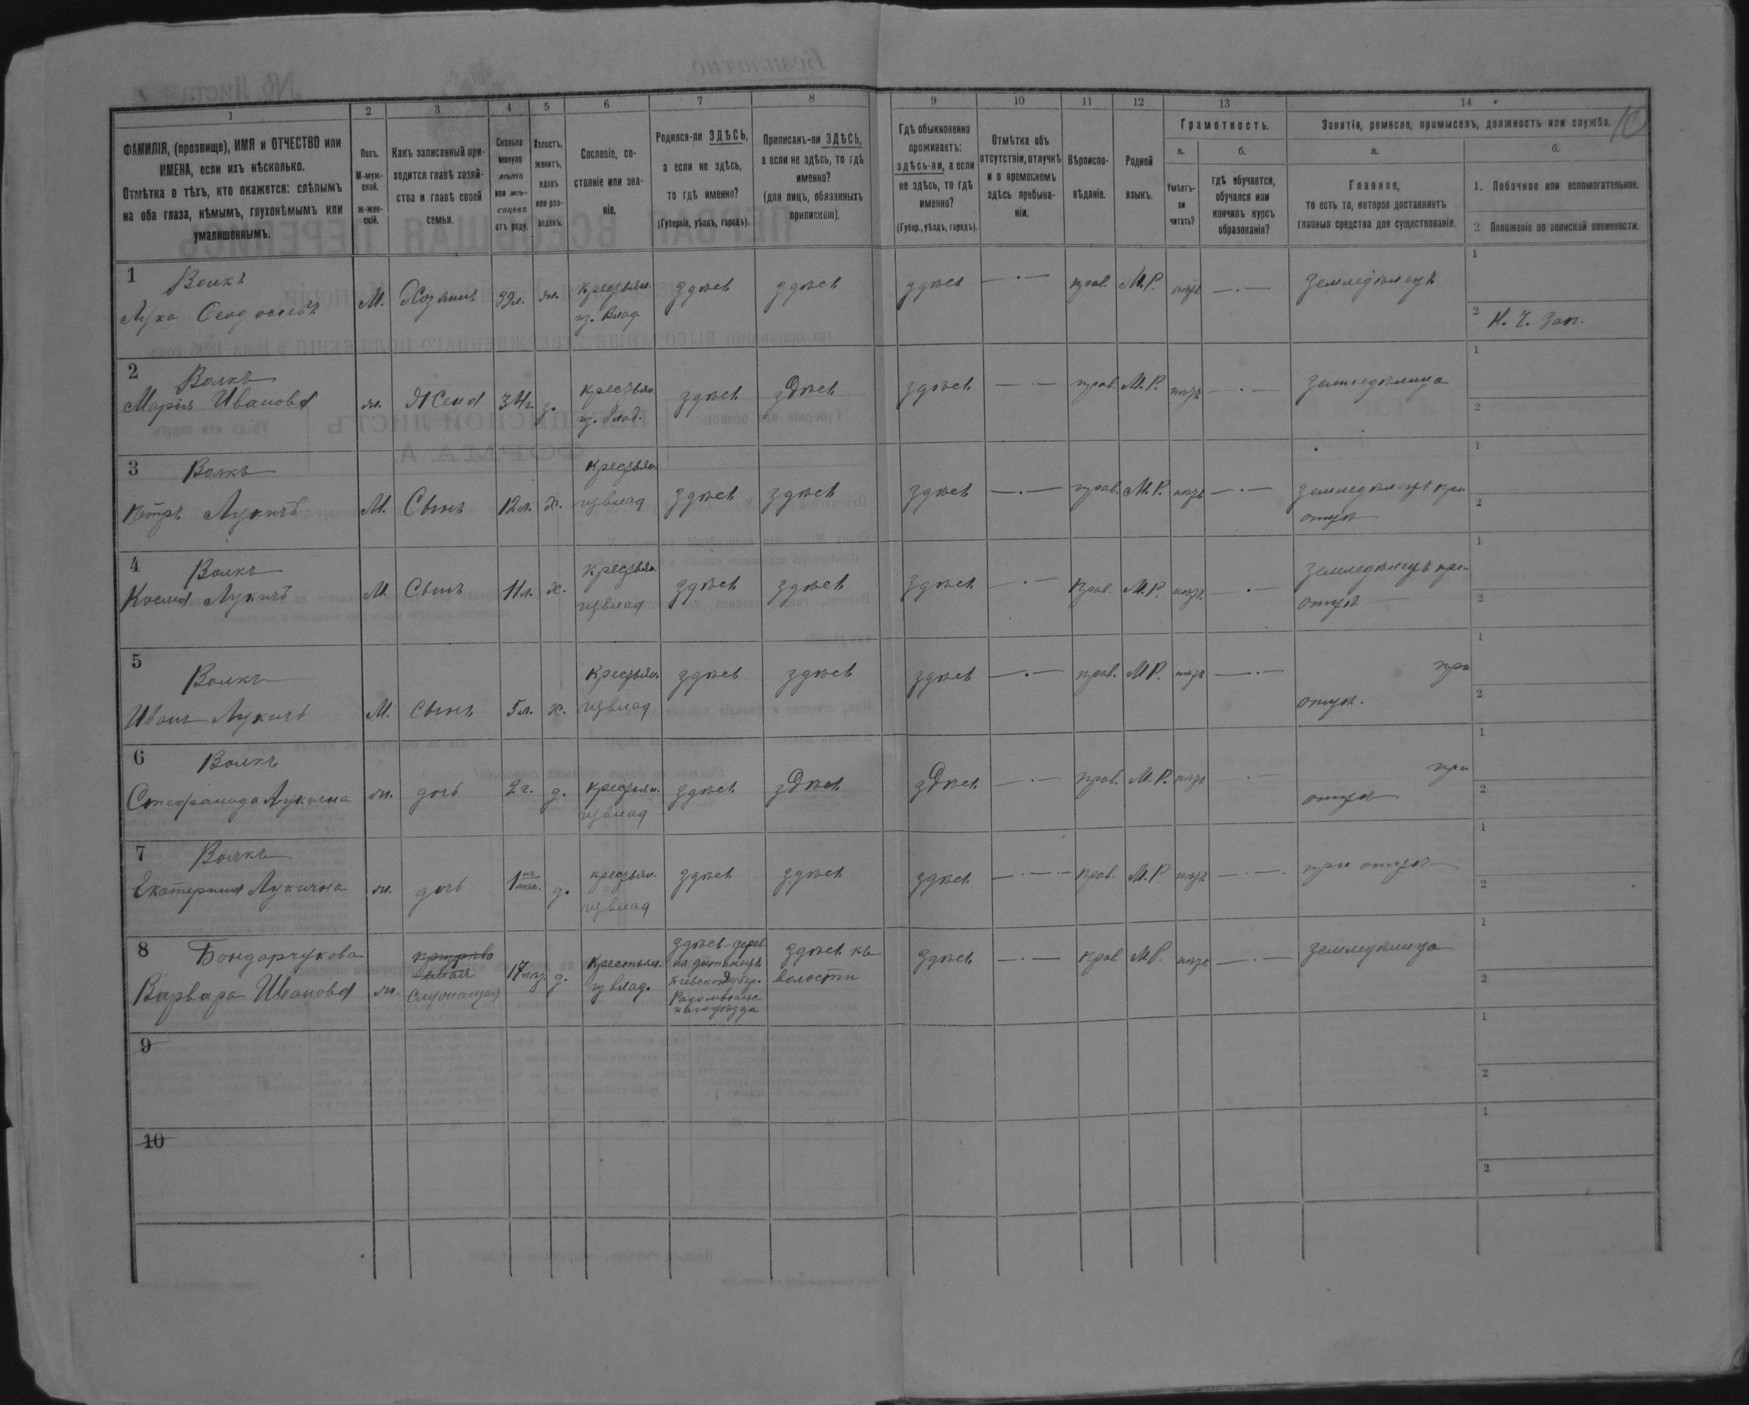 1 2 3 4 5 6 7 8 9 10 11 12 13 14
10
ФАМИЛІЯ, (прозвище), ИМЯ и ОТЧЕСТВО или
ИМЕНА, если ихъ нѣсколько.
Отмѣтка о тѣхъ, кто окажется: слѣпымъ
на оба глаза, нѣмымъ, глухонѣмымъ или
умалишеннымъ.
Полъ.
М-муж-
ской.
ж-жен-
скій.
Какъ записанный при-
ходится главѣ хозяй-
ства и главѣ своей
семьи.
Сколько
минуло
лѣтъ
или мѣ-
сяцевъ
отъ роду.
Холостъ,
женатъ,
вдовъ
или раз-
веденъ.
Сословіе, со-
стояніе или зва-
ніе.
Родился-ли ЗДѢСЬ,
а если не здѣсь,
то гдѣ именно?
(Губернія, уѣздъ, городъ).
Приписанъ-ли ЗДѢСЬ,
а если не здѣсь, то гдѣ
именно?
(для лицъ, обязанныхъ
припискою).
Гдѣ обыкновенно
проживаетъ:
здѣсь-ли, а если
не здѣсь, то гдѣ
именно?
(Губер., уѣздъ, городъ).
Отмѣтка объ
отсутствіи, отлучкѣ
и о временномъ
здѣсь пребыва-
ніи.
Вѣроиспо-
вѣданіе.
Родной
языкъ.
Грамотность.
а.
Умѣетъ-
ли
читать?
б.
гдѣ обучается,
обучался или
кончилъ курсъ
образованія?
Занятіе, ремесло, промыселъ, должность или служба.
а.
Главное,
то есть то, которое доставляетъ
главныя средства для существованія.
б.
1. Побочное или вспомогательное.
2 Положеніе по воинской повинности.
1 Волкъ
Лука
М. Хозяинъ 39л. ж. крестьян. из. влад. здѣсь здѣсь здѣсь — · — прав. М.Р. — · — земледѣлецъ
1
2 Н. Ч. Зап.
2 Волкъ
Марія Иванова ж. Жена 34г. з. крестьян. из. влад. здѣсь здѣсь здѣсь — · — прав. М.Р. — · — земледѣлица
1
2
3 Волкъ
Петръ Лукичъ М. Сынъ 12л. х. крестьян. из влад здѣсь здѣсь здѣсь — · — прав. М.Р. — · — земледѣлецъ при
отцѣ
1
2
4 Волкъ
Косма Лукичъ М. Сынъ 11л. х. крестьян. из влад здѣсь здѣсь здѣсь — · — прав. М.Р. — · — земледѣлецъ при
отцѣ
1
2
5 Волкъ
Иванъ Лукичъ М. сынъ 5л. х. крестьян. из влад здѣсь здѣсь здѣсь — · — прав. М.Р. — · — при
отцѣ.
1
2
6 Волкъ
Стефанида Лукична ж. дочь 2г. д. крестьян. из влад здѣсь здѣсь здѣсь — · — прав. М.Р. при
отцѣ
1
2
7 Волкъ
Екатерина Лукична ж. дочь 1 д. крестьян. из влад здѣсь здѣсь здѣсь — · — прав. М.Р. — · — при отцѣ
1
2
8 Бондарчукова
Варвара Иванова ж. д. Крестьян. из влад. здѣсь здѣсь — · — прав М.Р. — · — земледѣлица
Кіевской губер.
волости
1
2
9
1
2
10
1
2